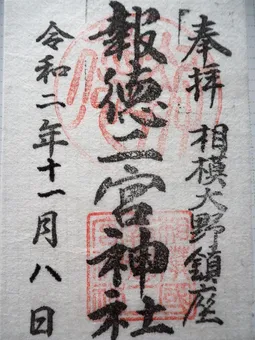 奉拝 相模大野鎮座
報徳二宮神社
令和二年十一月八日